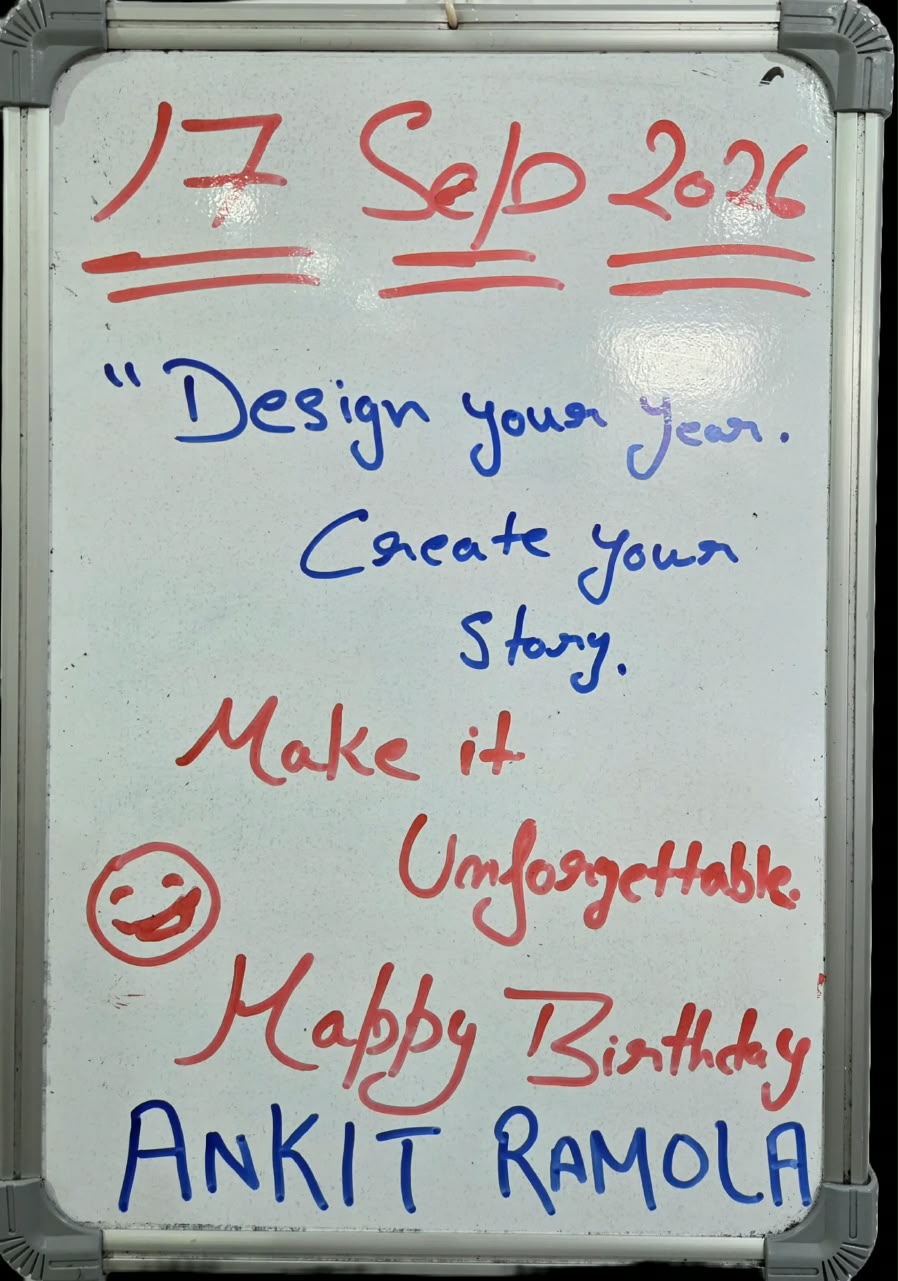 17 Sep 2026
"Design your year.
Create your
Story.
Make it
Unforgettable.
Happy Birthday
ANKIT RAMOLA